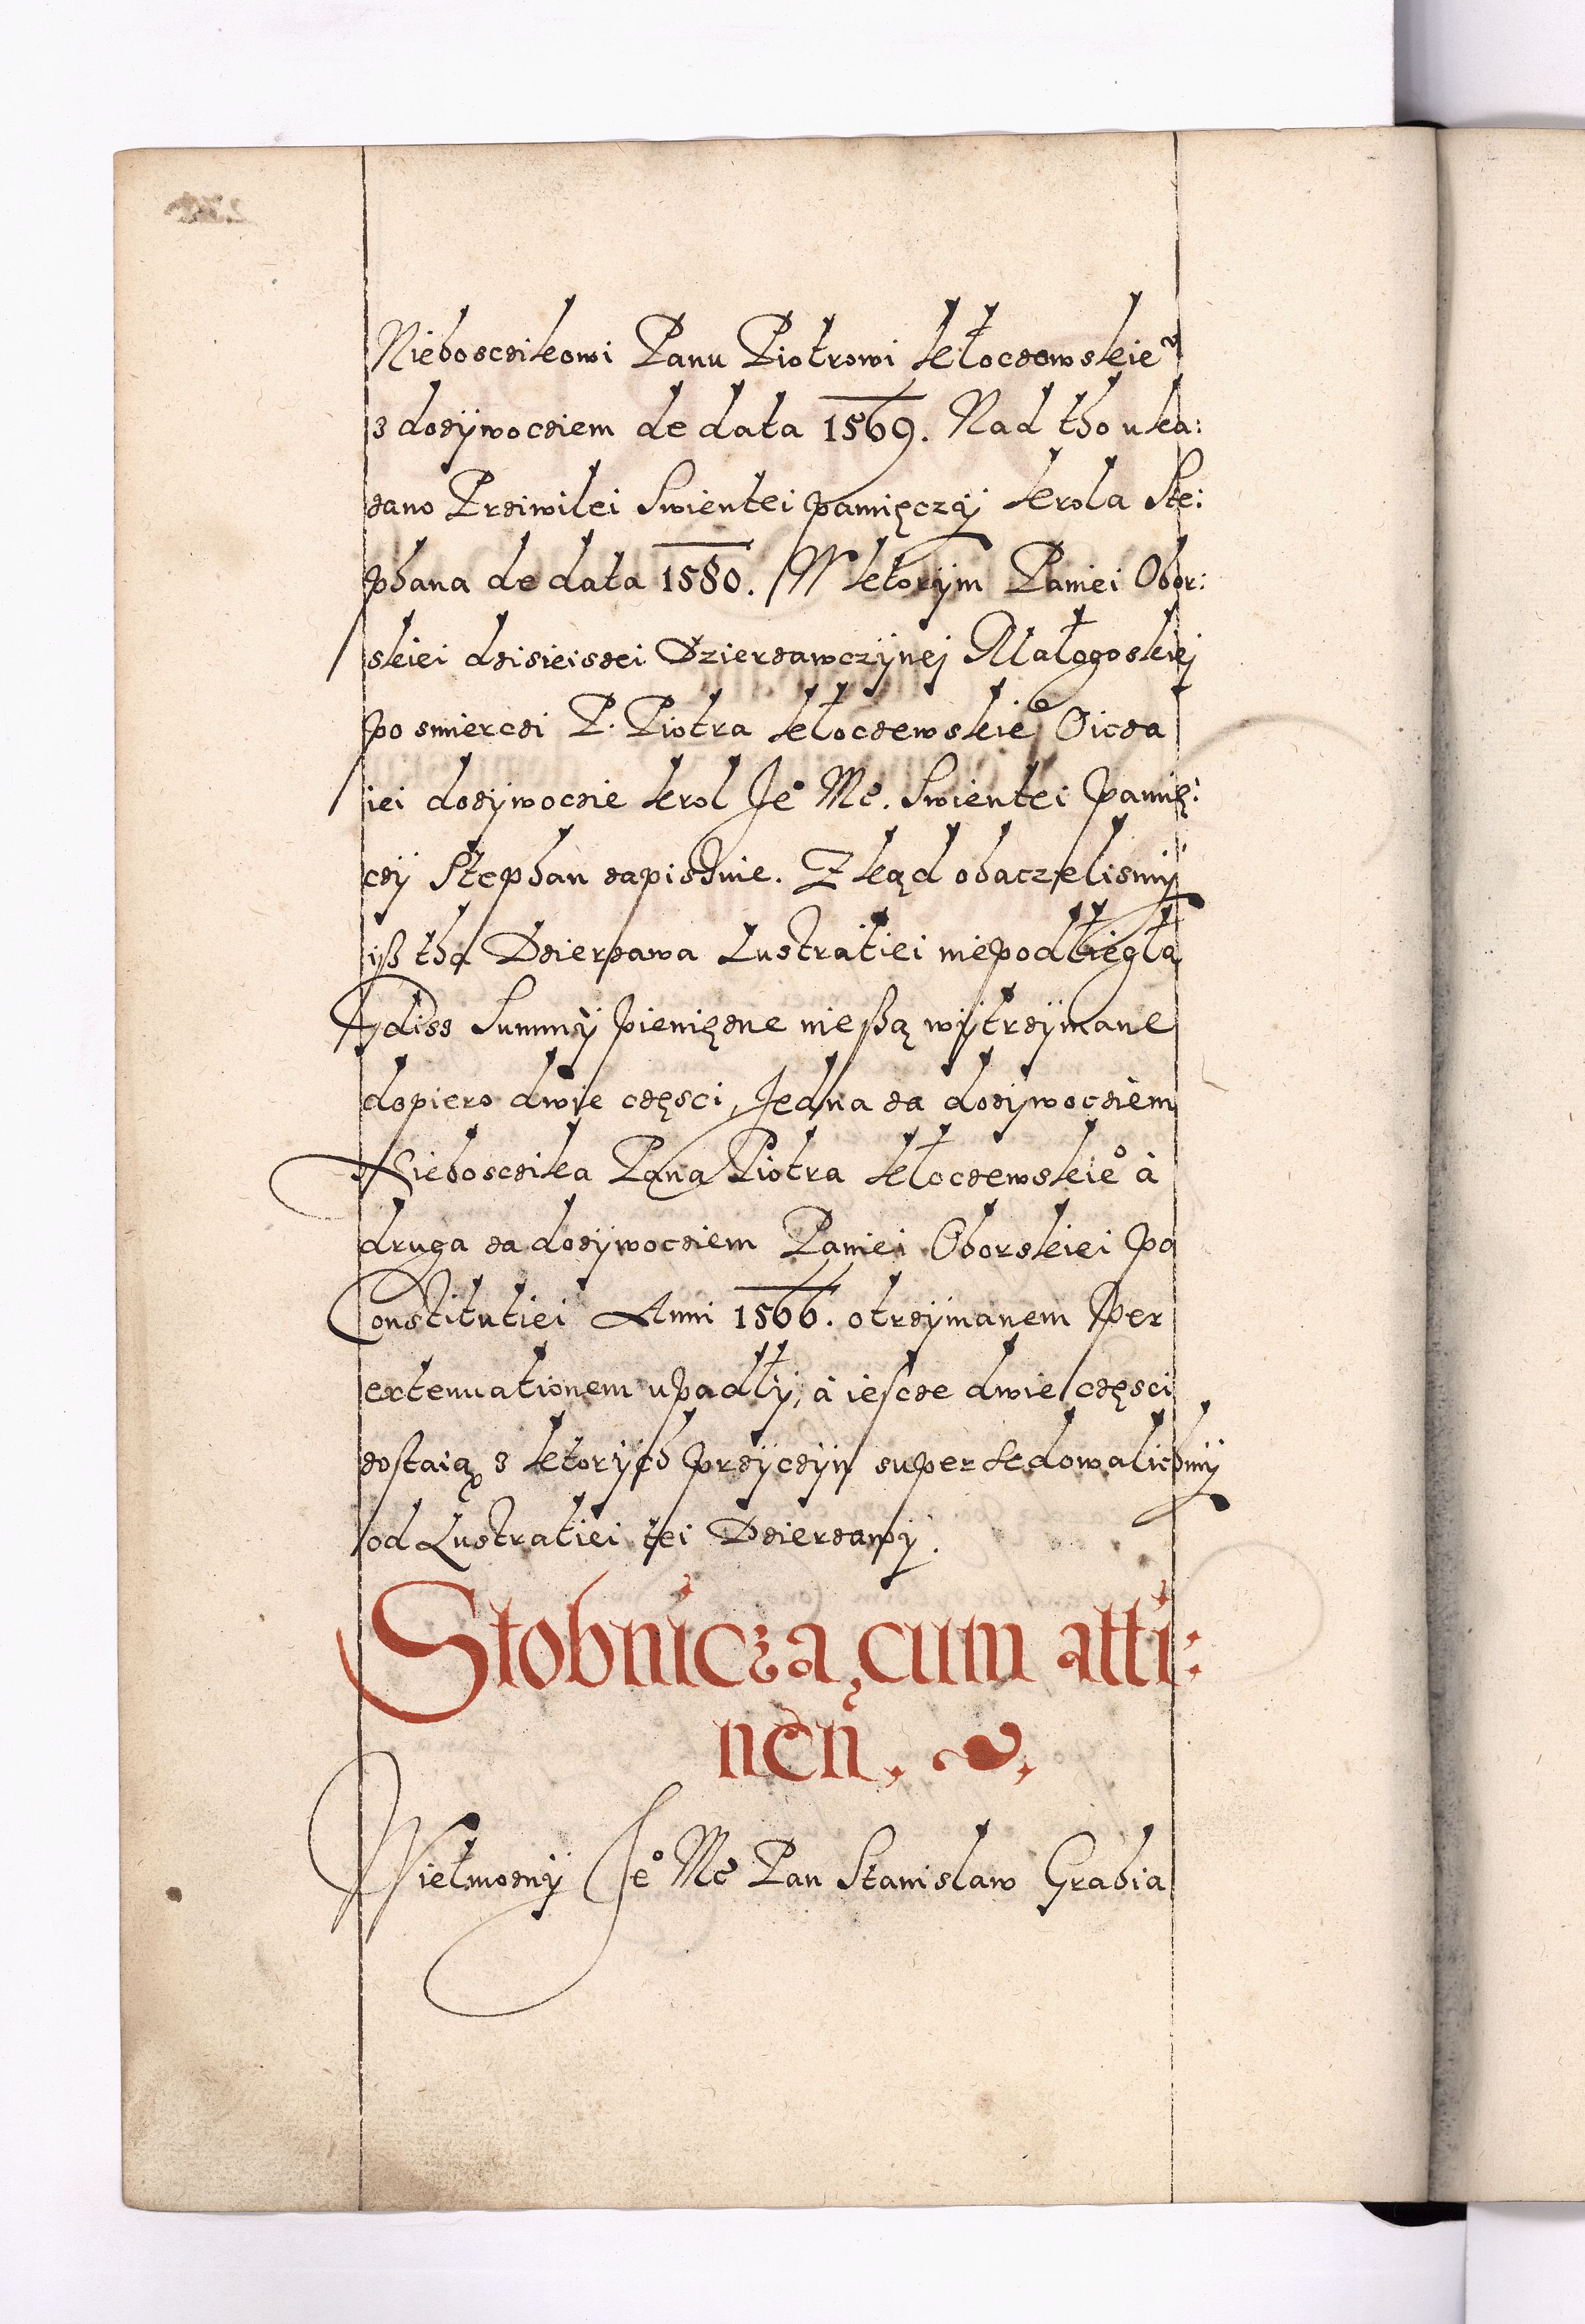 Niebosczikowi Panu Piotrowi Kłoczowskieᵘ
z dozÿwocziem de data 1569. Nad tho uka:
zano Przivilei Swientei pamięczÿ Krola Ste:
phana de data 1580. W ktorÿm Paniei Obor:
skiei dzisieiszei Dzierzawczÿnej Małogoskiej
po smierczi P. Piotra Kłoczewskieº Oicza
iei dozÿwoczie Krol Jeº Mc. Swientei Pamię:
czÿ Stephan zapisuie. Zkąd obaczelismÿ
iß tha Dzierzawa Lustratiei niepodliegła
Gdisz Summÿ pieniężne nie ßą wÿtrzÿmane
dopiero dwie części, Jedna za dozÿwocziem
Nieboszczika Pana Piotra Kłoczewskieº à
druga za dozÿwocziem Paniei Oborskiei po
Constitutiei Anni 1566. otrzÿmanem Per
extenuationem upadłÿ, à iescze dwie części
zostaią z ktorÿch przÿczÿn supersedowalichmÿ
od Lustratiei tei Dzierzawÿ.
Stobnicza, cum atti:
nen̄.
Wielmoznÿ Jeº Mc Pan Stanislaw Grabia